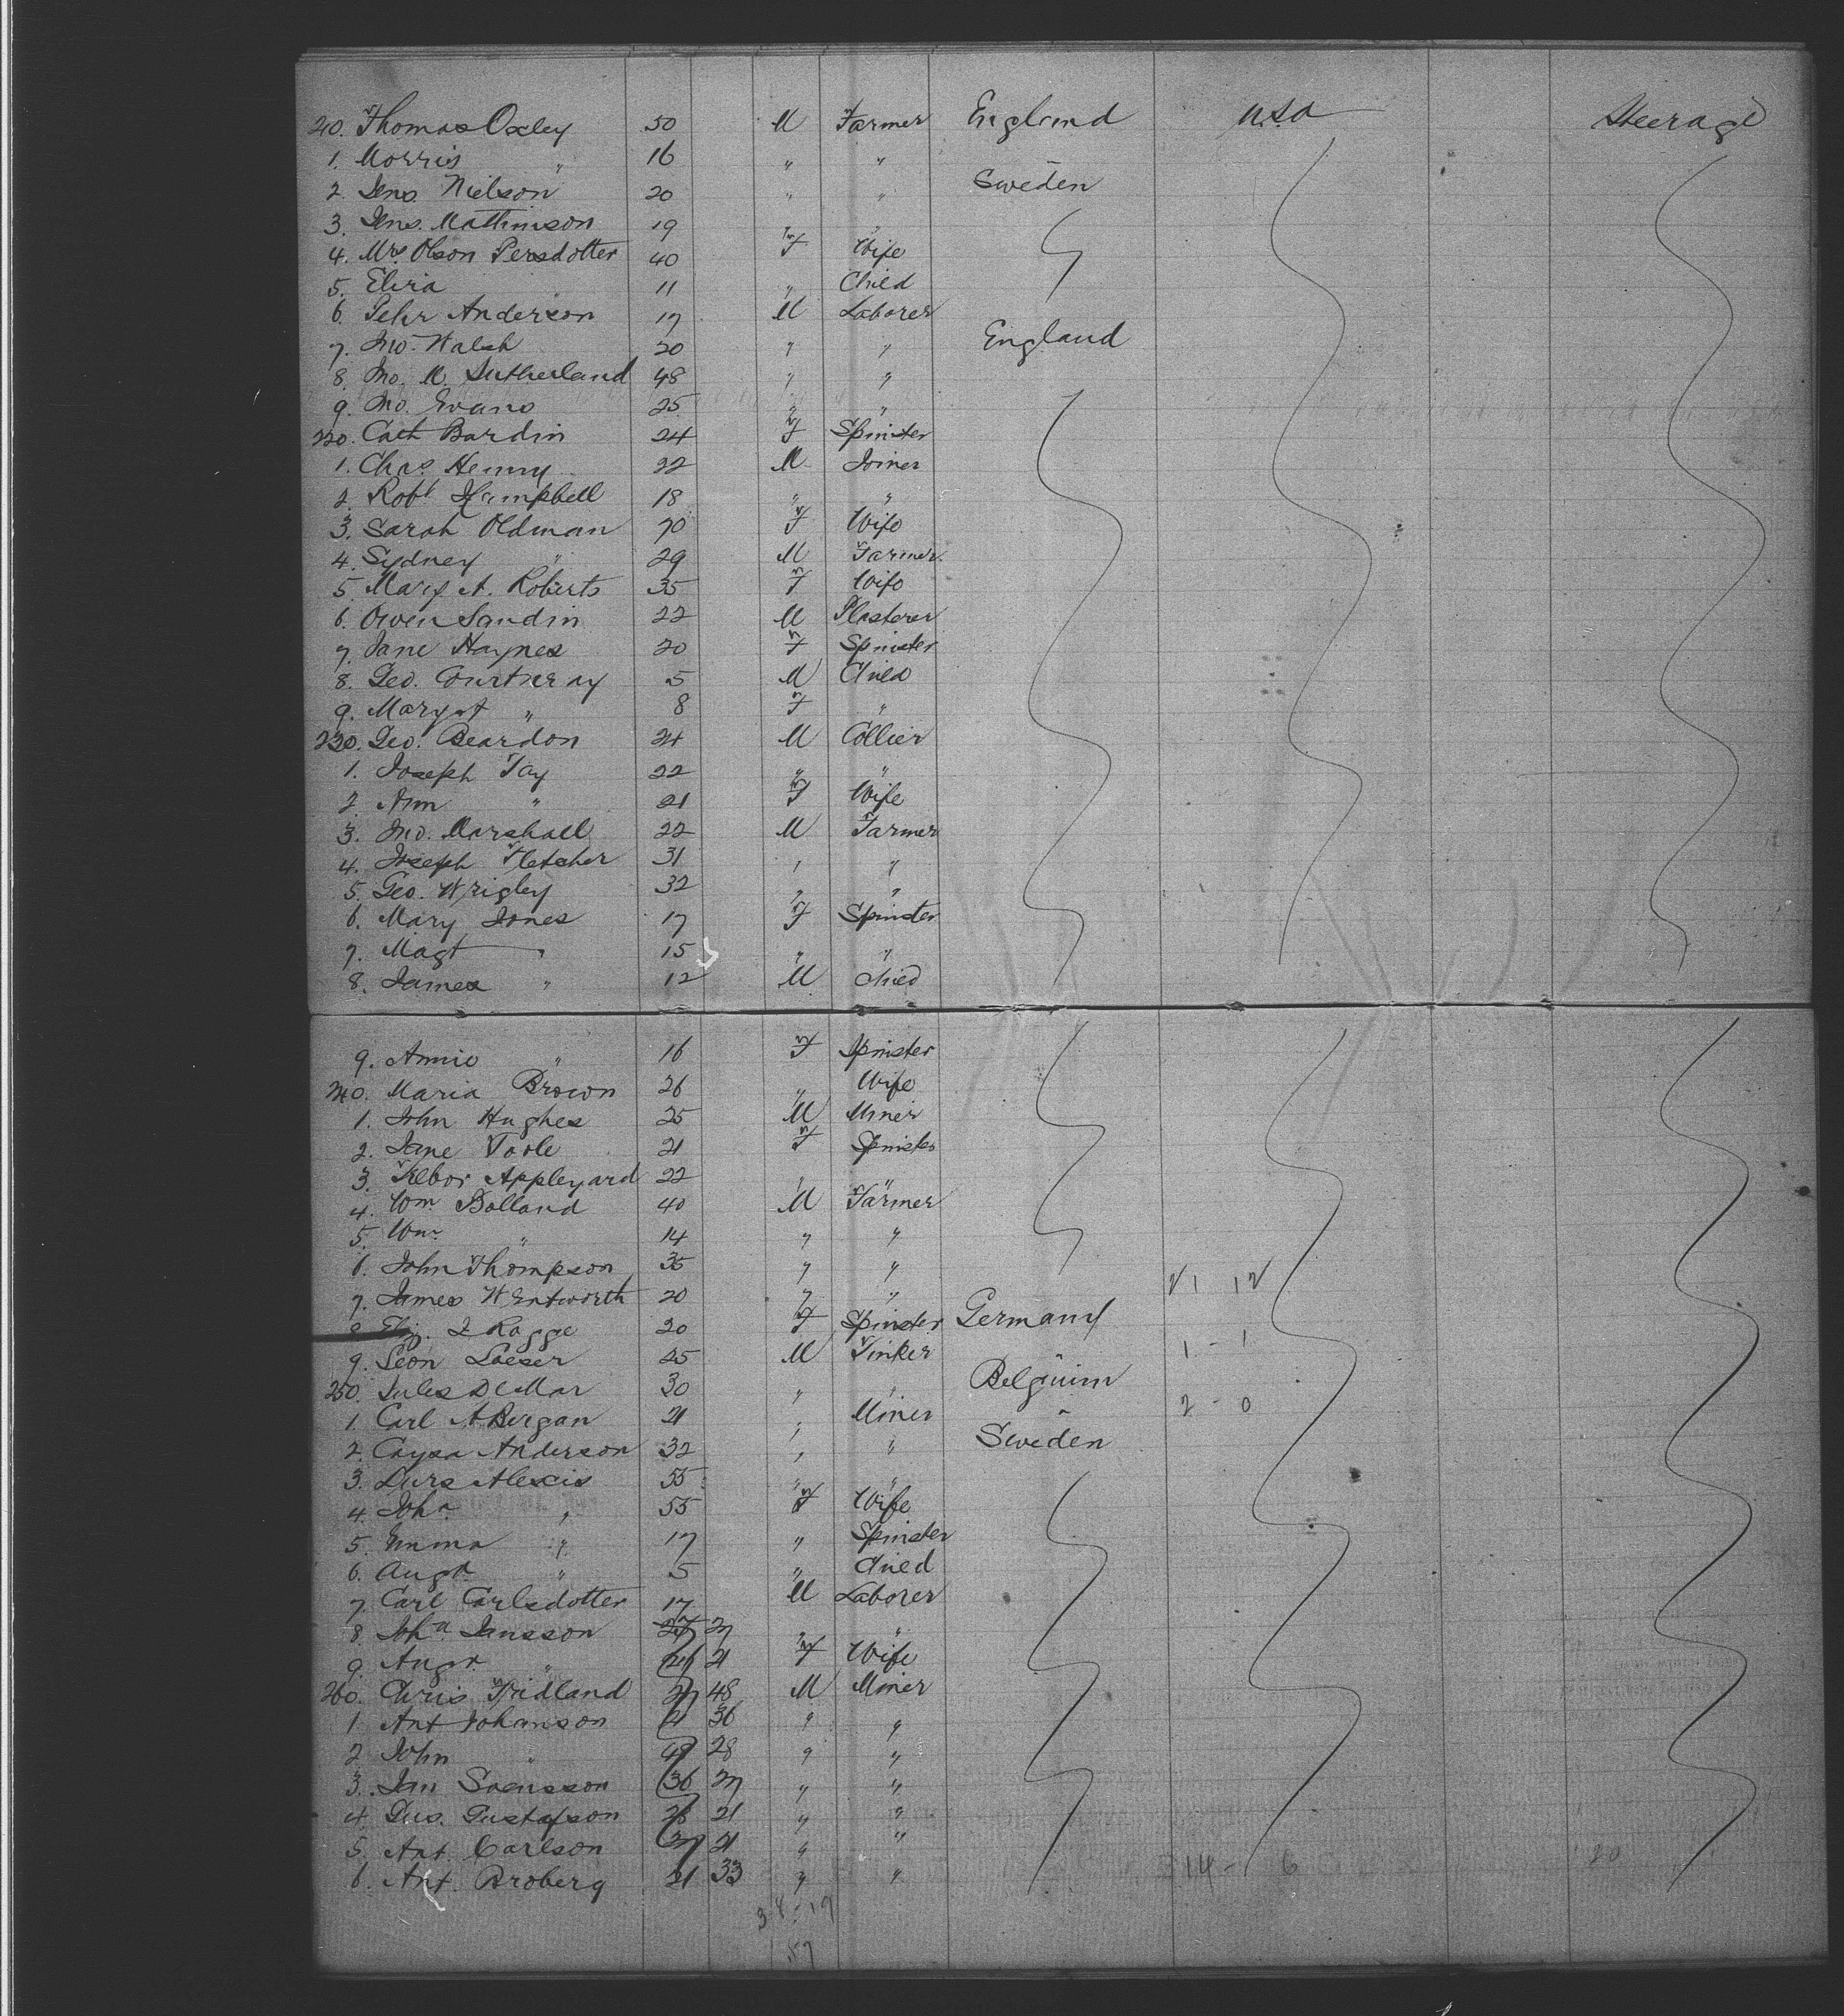 210. Thomas Oxley 50 M Farmer England USA Steerage
1. Morris " 16 " "
2. Jens Nielson 20 " " Sweden
3. Jens. Mathinson 19 "
4. Mrs Olson Persdotter 40 F Wife
5. Elira 11 " Child
6. Pehr Anderson 17 M Laborer
7. Jno. Walsh 20 " " England
8. Jno. M. Sutherland 48 " "
9. Jno. Evans 25 " "
220. Cath Bardin 24 F Spinster
1. Chas Henry 22 M Joiner
2. Robt Hampbell 18 " "
3. Sarah Oldman 70 F Wife
4. Sydney " 29 M Farmer
5. Mary A. Roberts 35 F Wife
6. Owen Sandin 22 M Plasterer
7. Jane Haynes 20 F Spinster
8. Geo. Courtneray 5 M Child
9. Margt " 8 F "
230. Geo. Beardon 24 M Collier
1. Joseph Tay 22 " "
2. Ann " 21 F Wife
3. Jno. Marshall 22 M Farmer
4. Joseph Fletcher 31 " "
5. Geo. Wrigley 32 " "
6. Mary Jones 17 F Spinster
7. Magt " 15 " "
8. James " 12 M Child
9. Annie " 16 F Spinster
240. Maria Brown 26 " Wife
1. John Hughes 25 M Miner
2. Jane Toole 21 F Spinster
3. Appleyard 22 " "
4. Wm Bolland 40 M Farmer
5. Wm " 14 " "
6. John Thompson 35 " "
7. James Wentworth 20 " " 21 12
8 Eliz. Z Ragge 20 F Spinster Germany
9. Leon Loeser 25 M Tinker 1 - 1
250. Jules De Mar 30 " " Belgium
1. Carl A Bergan 21 " Miner 2 - 0
2. Caysa Anderson 32 " " Sweden
3. Lurs Alexis 55 " "
4. Joha " 55 F Wife
5. Emma " 17 " Spinster
6. Augta " 5 " Child
7. Carl Carlsdotter 17 M Laborer
8. Joha Jansson 27 27 " "
9. Augta " 21 F Wife
260. Chris Fridland 27 48 M Miner
1. Ant Johanson 21 36 " "
2 John " 48 28 " "
3. Jan Svensson 36 27 " "
4. Gus. Gustafson 28 21 " "
5. Ant. Carlson 27 21 " "
6. Ant. Broberg 21 33 " " 14 - 6 20
38 - 19
57